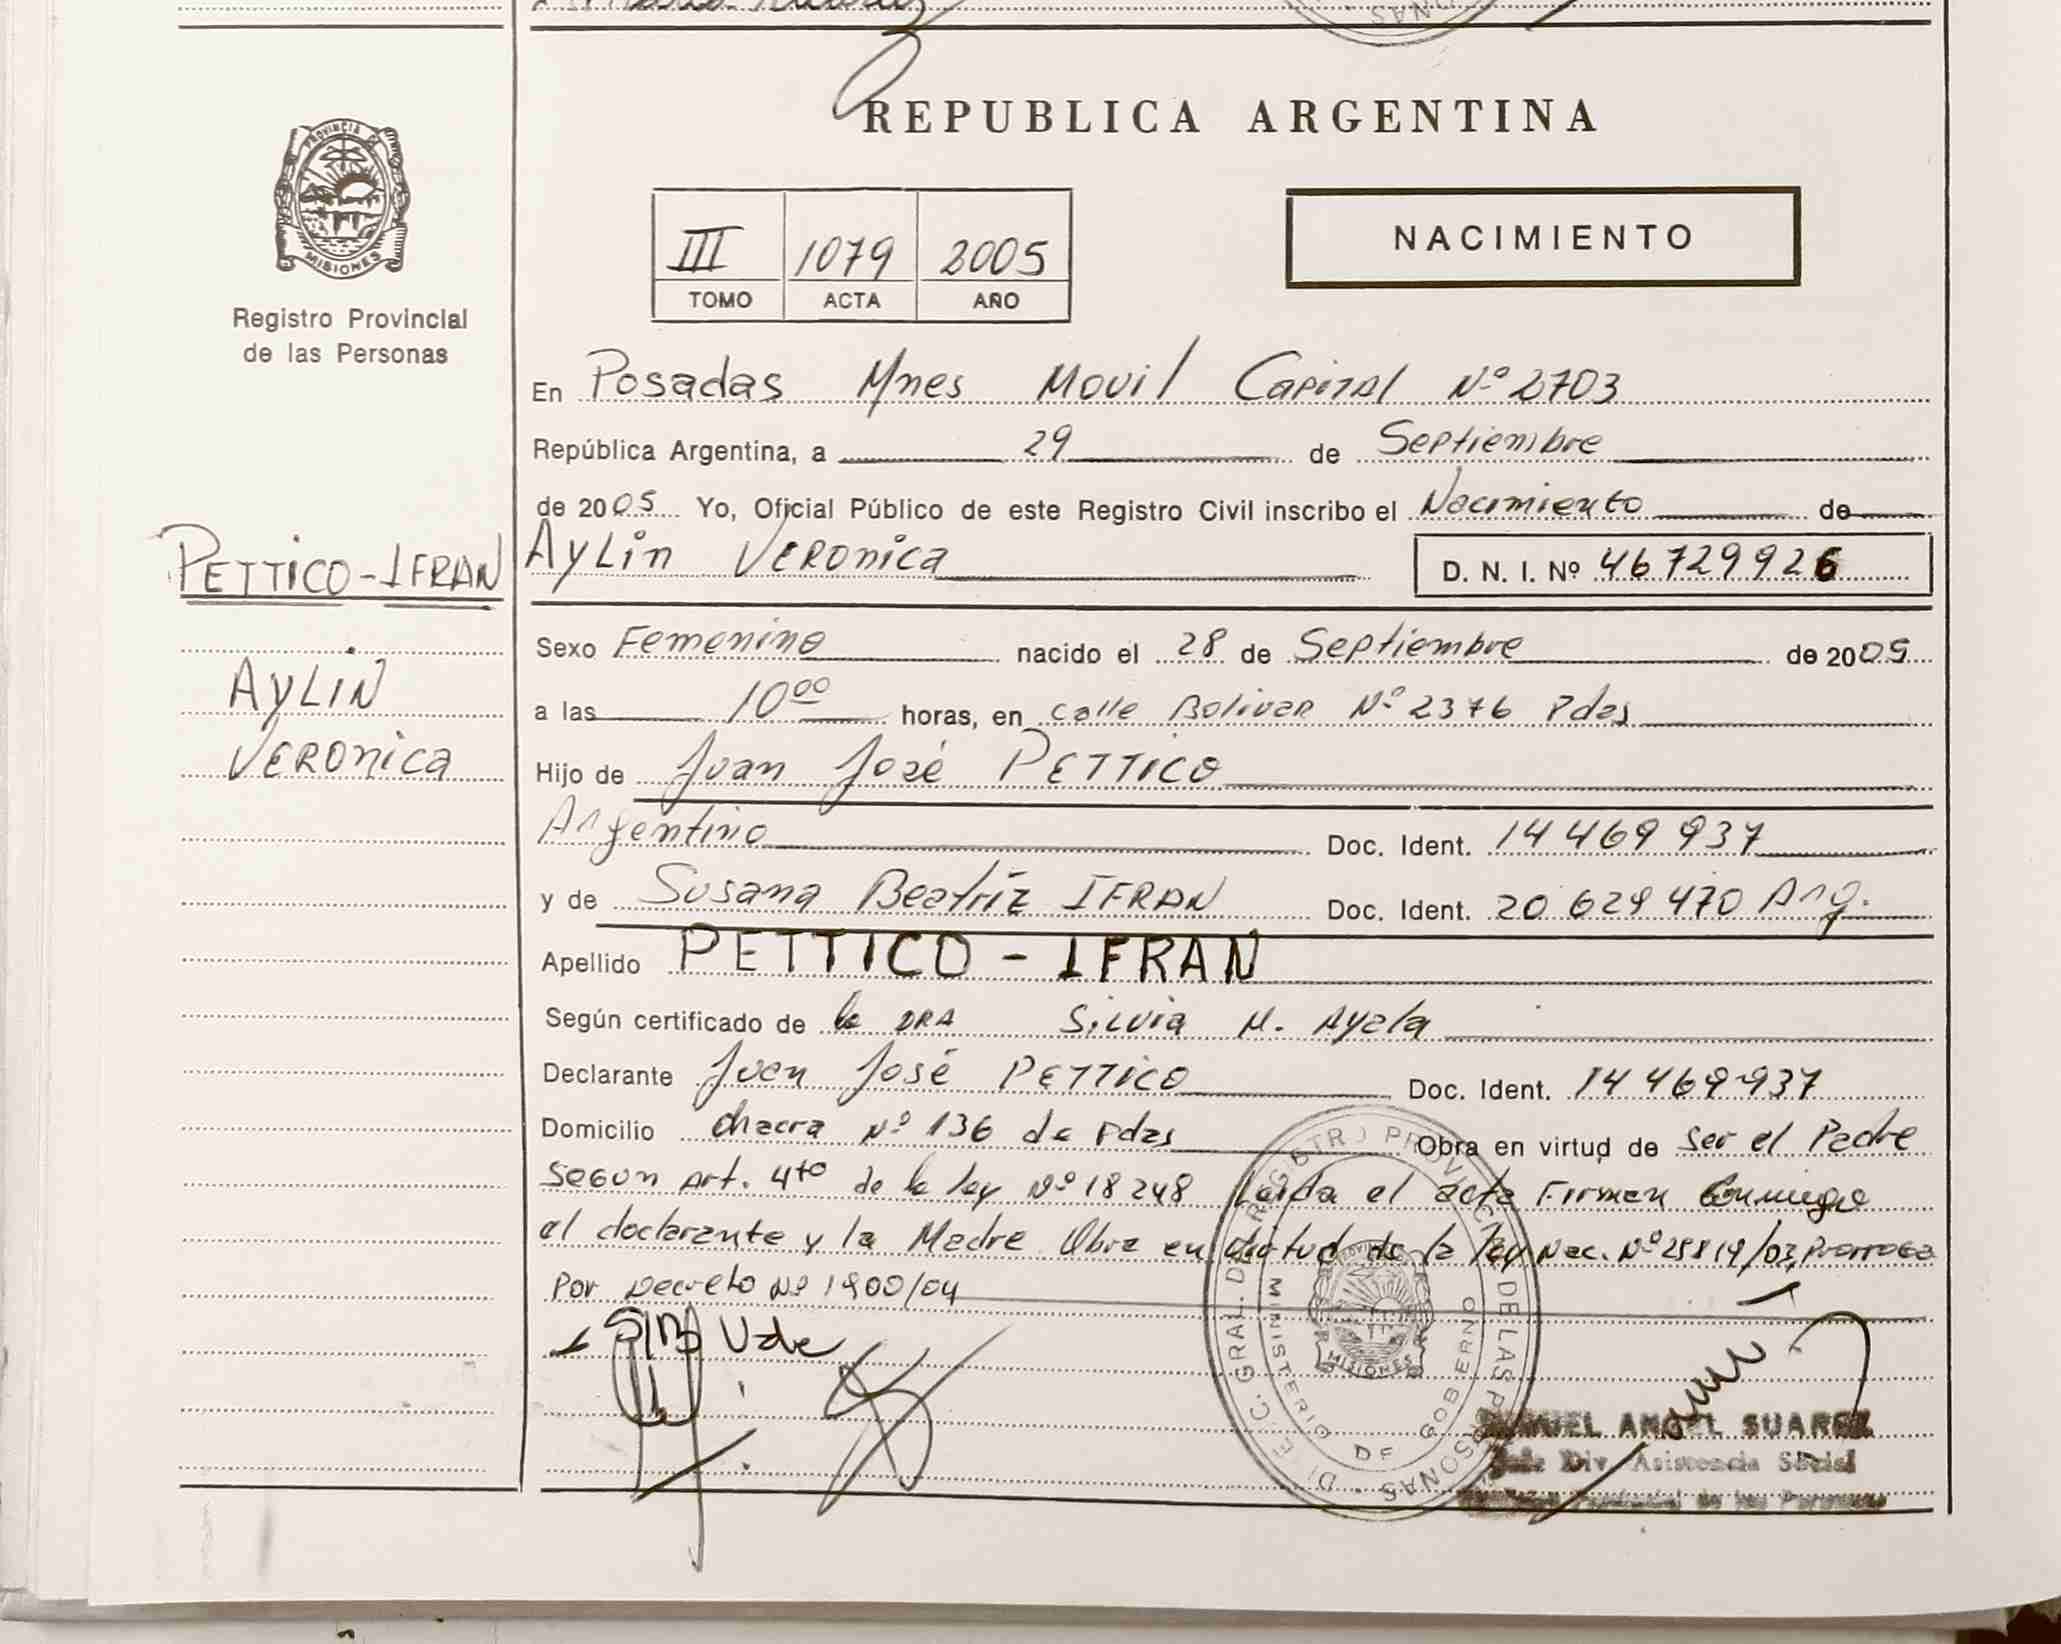 REPUBLICA ARGENTINA
PROVINCIA DE MISIONES
Registro Provincial
de las Personas
III 1079 2005
TOMO ACTA AÑO
NACIMIENTO
En Posadas Mnes Movil Capital Nº 2703
República Argentina, a 29 de Septiembre
de 2005 Yo, Oficial Público de este Registro Civil inscribo el Nacimiento de
PETTICO-IFRAN
AYLIN
VERONICA
Aylin Veronica D. N. I. Nº 46729926
Sexo Femenino nacido el 28 de Septiembre de 2005
a las 10 00 horas, en calle Bolivar Nº 2376 Pdas
Hijo de Juan José PETTICO
Argentino Doc. Ident. 14 469 937
y de Susana Beatriz IFRAN Doc. Ident. 20 629 470 Arg.
Apellido PETTICO - IFRAN
Según certificado de la DRA Silvia M. Ayala
Declarante Juan José PETTICO Doc. Ident. 14 469 937
Domicilio chacra Nº 136 de Pdas Obra en virtud de ser el Padre
segun Art. 4to de la ley Nº 18248 Leida el acta Firman Conmigo
el declarante y la Madre Obra en virtud de la ley Nac. Nº 25819/03, Prorroga
Por Decreto Nº 1900/04
DIREC. GRAL. DEL REGISTRO PROVINCIAL DE LAS PERSONAS
MINISTERIO DE GOBIERNO
MISIONES
ANGEL SUAREZ
Jefe Div. Asistencia Social
Provincial de las Personas